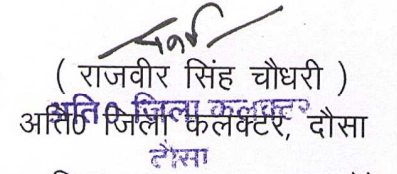 ( राजवीर सिंह चौधरी )
अति० जिला कलक्टर
अति0 जिला कलक्टर, दौसा
दौसा